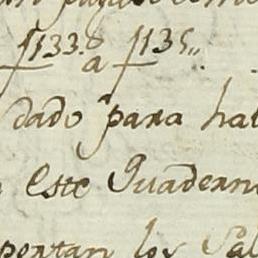 f133. a f135,,
dado para ha
Este Quadern
portan los Sal